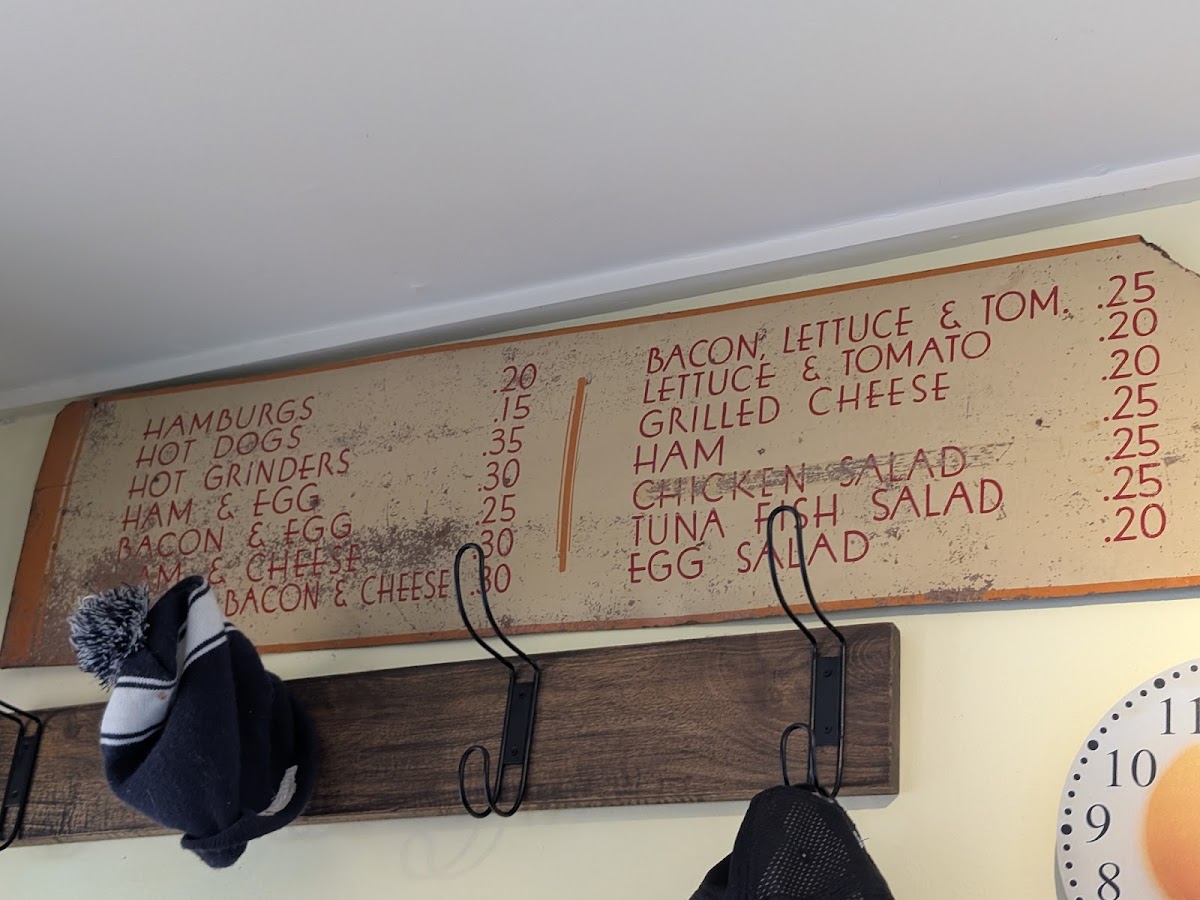 HAMBURGS .20
HOT DOGS .15
HOT GRINDERS .35
HAM & EGG .30
BACON & EGG .25
AM & CHEESE .30
BACON & CHEESE .30
BACON, LETTUCE & TOM. .25
LETTUCE & TOMATO .20
GRILLED CHEESE .20
HAM .25
CHICKEN SALAD .25
TUNA FISH SALAD .25
EGG SALAD .20
11
10
9
8